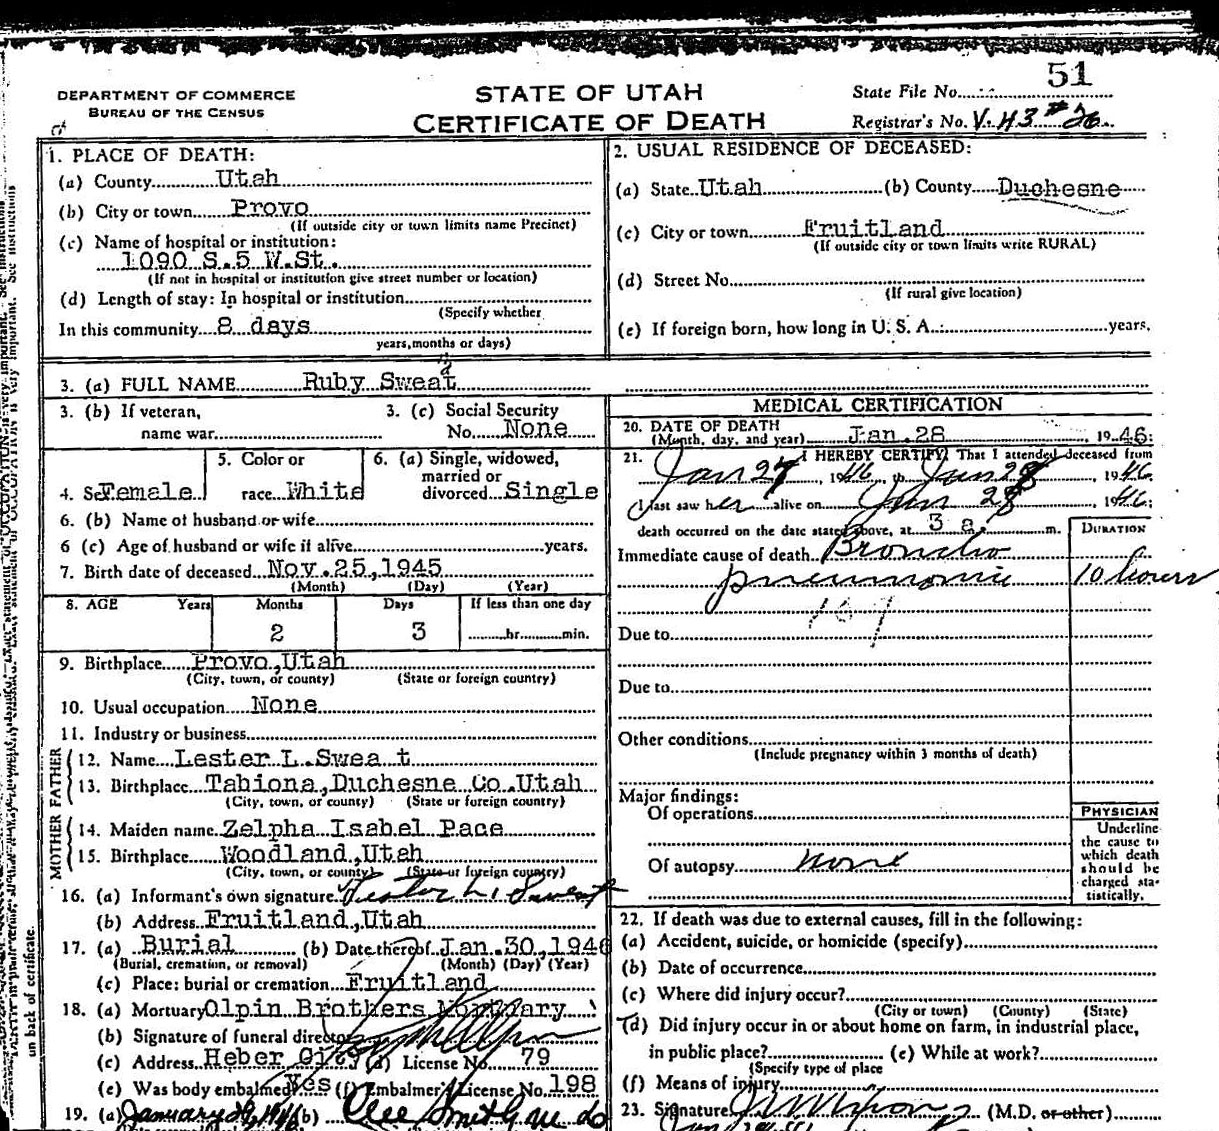 51
DEPARTMENT OF COMMERCE
BUREAU OF THE CENSUS
STATE OF UTAH
CERTIFICATE OF DEATH
State File No.
Registrar's No. V. 43 #26
1. PLACE OF DEATH:
(a) County Utah
(b) City or town Provo
(If outside city or town limits name Precinct)
(c) Name of hospital or institution:
1090 S.5 W.St.
(If not in hospital or institution give street number or location)
(d) Length of stay: In hospital or institution
(Specify whether
In this community 8 days
years, months or days)
2. USUAL RESIDENCE OF DECEASED:
(a) State Utah (b) County Duchesne
(c) City or town Fruitland
(If outside city or town limits write RURAL)
(d) Street No.
(If rural give location)
(e) If foreign born, how long in U. S. A.: years.
3. (a) FULL NAME Ruby Sweat
3. (b) If veteran,
name war
3. (c) Social Security
No. None
4. Sex Female
5. Color or
race White
6. (a) Single, widowed,
married or
divorced Single
6. (b) Name of husband or wife
6 (c) Age of husband or wife if alive years.
7. Birth date of deceased Nov. 25, 1945
(Month) (Day) (Year)
8. AGE Years Months Days If less than one day
2 3 hr. min.
9. Birthplace Provo, Utah
(City, town, or county) (State or foreign country)
10. Usual occupation None
11. Industry or business
FATHER
12. Name Lester L. Sweat
13. Birthplace Tabiona, Duchesne Co. Utah
(City, town, or county) (State or foreign country)
MOTHER
14. Maiden name Zelpha Isabel Pace
15. Birthplace Woodland, Utah
(City, town, or county) (State or foreign country)
16. (a) Informant's own signature Lester L. Sweat
(b) Address Fruitland, Utah
17. (a) Burial (b) Date thereof Jan. 30, 1946
(Burial, cremation, or removal) (Month) (Day) (Year)
(c) Place: burial or cremation Fruitland
18. (a) Mortuary Olpin Brothers Mortuary
(b) Signature of funeral director
(c) Address Heber City (d) License No. 79
(e) Was body embalmed Yes (f) Embalmer's License No. 198
19. (a) January 29, 1946 (b)
MEDICAL CERTIFICATION
20. DATE OF DEATH
(Month, day, and year) Jan. 28, 1946:
21. I HEREBY CERTIFY, That I attended deceased from
Jan 27, 1946, to Jan 28, 1946.
I last saw her alive on Jan 28, 1946;
death occurred on the date stated above, at 3 a. m.
DURATION
Immediate cause of death Broncho
pneumonia 10 hours
107
Due to
Due to
Other conditions
(Include pregnancy within 3 months of death)
Major findings:
Of operations
Of autopsy none
PHYSICIAN
Underline
the cause to
which death
should be
charged sta-
tistically.
22. If death was due to external causes, fill in the following:
(a) Accident, suicide, or homicide (specify)
(b) Date of occurrence
(c) Where did injury occur?
(City or town) (County) (State)
(d) Did injury occur in or about home on farm, in industrial place,
in public place? (e) While at work?
(Specify type of place
(f) Means of injury
23. Signature (M.D. or other)
on back of certificate.